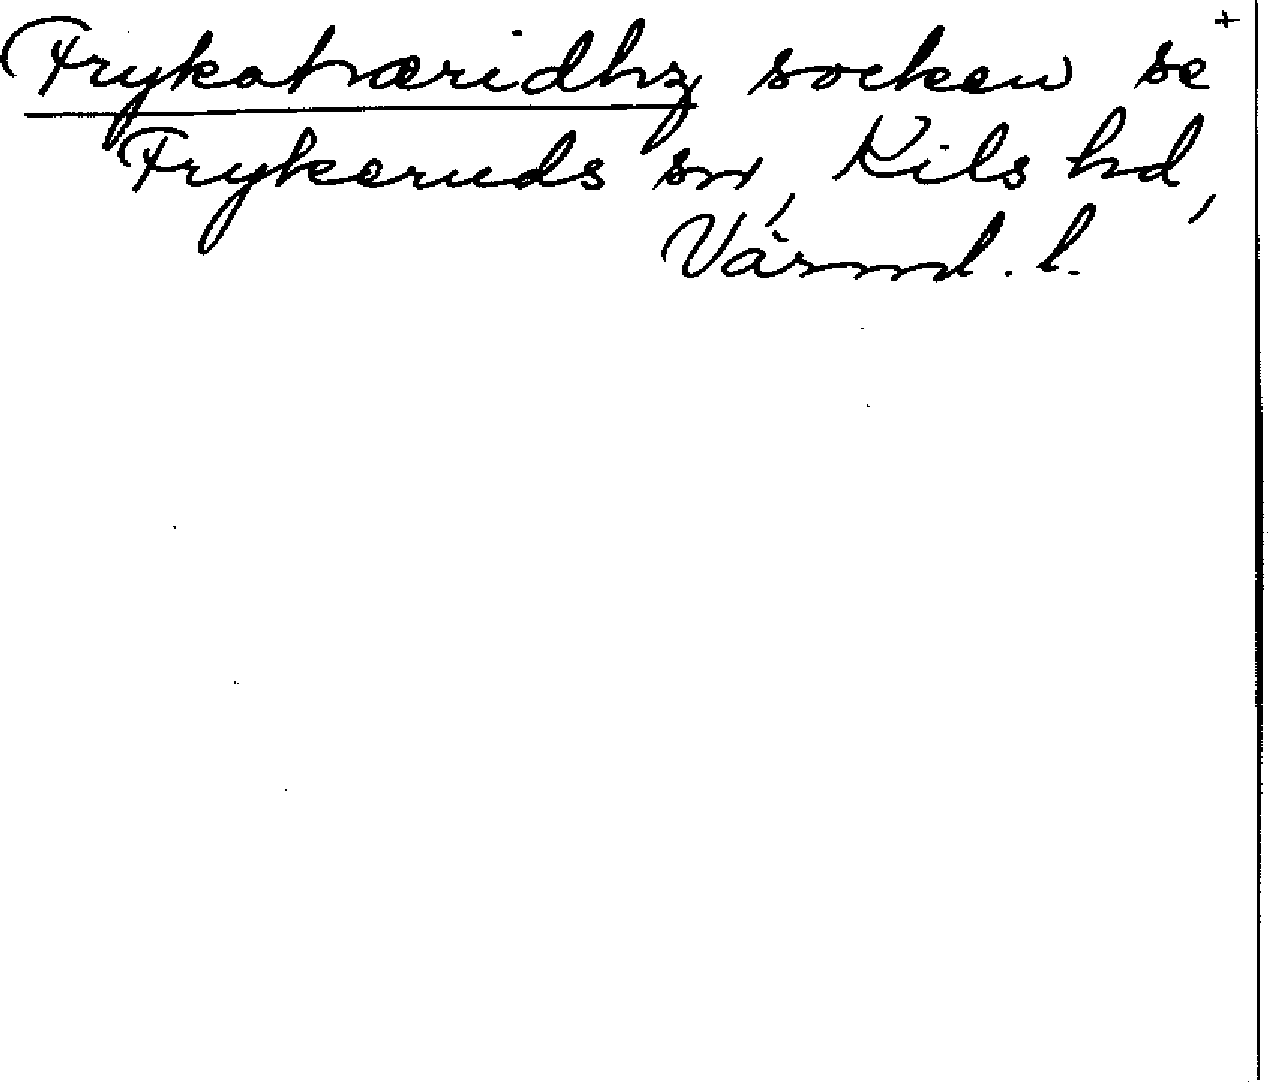 Frykahæridhz socken se +
Frykeruds sn, Kils hd,
Värml. l.